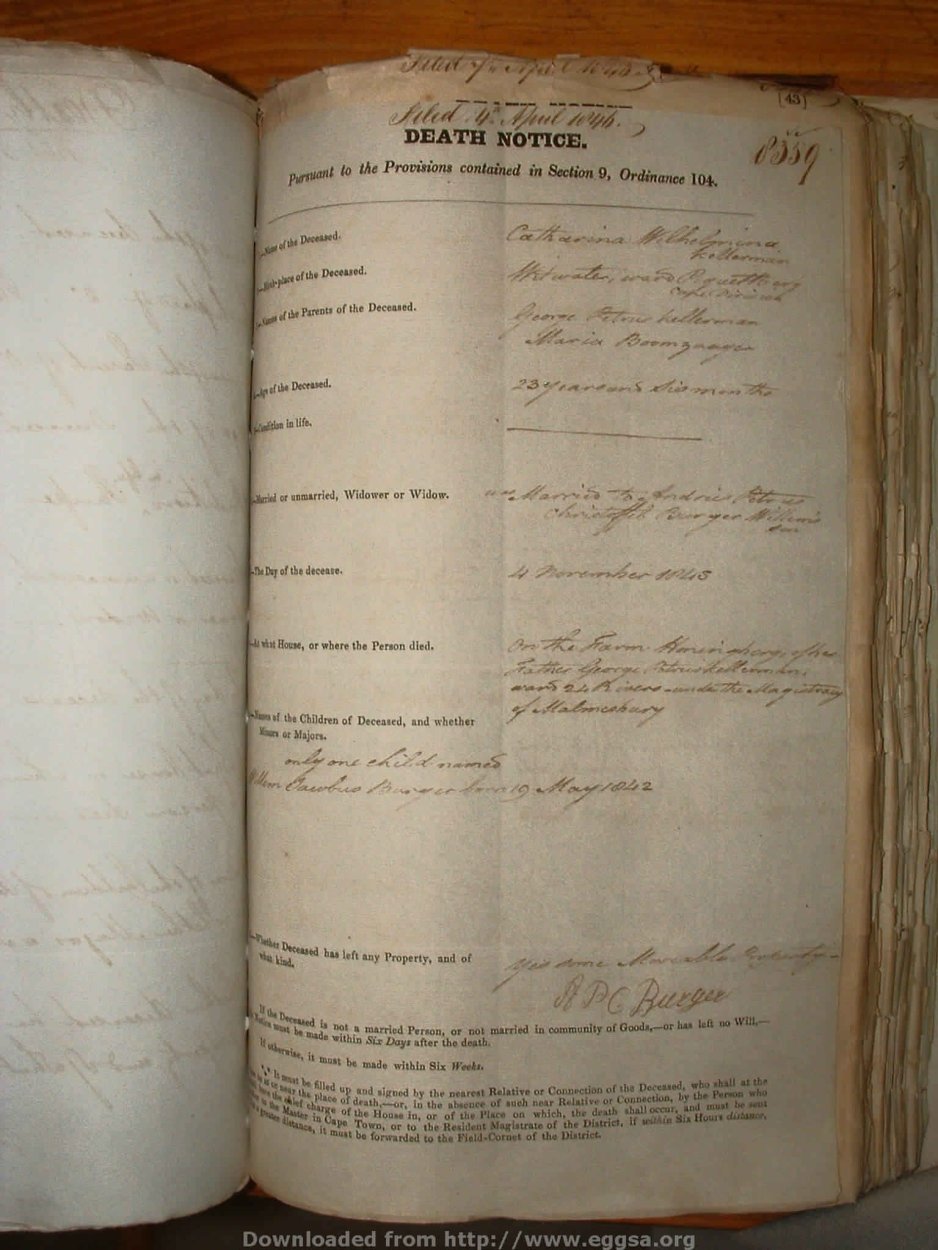 Filed 4th April 1846
[43]
Filed 4th April 1846.
DEATH NOTICE.
8559
Pursuant to the Provisions contained in Section 9, Ordinance 104.
—Name of the Deceased. Catharina Wilhelmina
Kellerman
—Birth-place of the Deceased. Witwater, ward Piquetberg
Cape Division
—Names of the Parents of the Deceased. George Petrus Kellerman
Maria Boomzaayer
—Age of the Deceased. 23 years and Six months
—Condition in life.
—Married or unmarried, Widower or Widow. was Married to Andries Petrus
Christoffel Burger Willem's
son
—The Day of the decease. 4 November 1845
—At what House, or where the Person died. On the Farm of her
Father George Petrus Kellerman,
ward 24 Rivers under the Magistracy
of Malmesbury
—Names of the Children of Deceased, and whether
Minors or Majors.
only one child named
Willem Jacobus Burger born 19 May 1842
—Whether Deceased has left any Property, and of
what kind. Yes some Moveable Property
A P C Burger
If the Deceased is not a married Person, or not married in community of Goods,—or has left no Will,—
Notice must be made within Six Days after the death.
If otherwise, it must be made within Six Weeks.
It must be filled up and signed by the nearest Relative or Connection of the Deceased, who shall at the
be at or near the place of death,—or, in the absence of such near Relative or Connection, by the Person who
have the chief charge of the House in, or of the Place on which, the death shall occur, and must be sent
to the Master in Cape Town, or to the Resident Magistrate of the District, if within Six Hours distance,
a greater distance, it must be forwarded to the Field-Cornet of the District.
Downloaded from http://www.eggsa.org